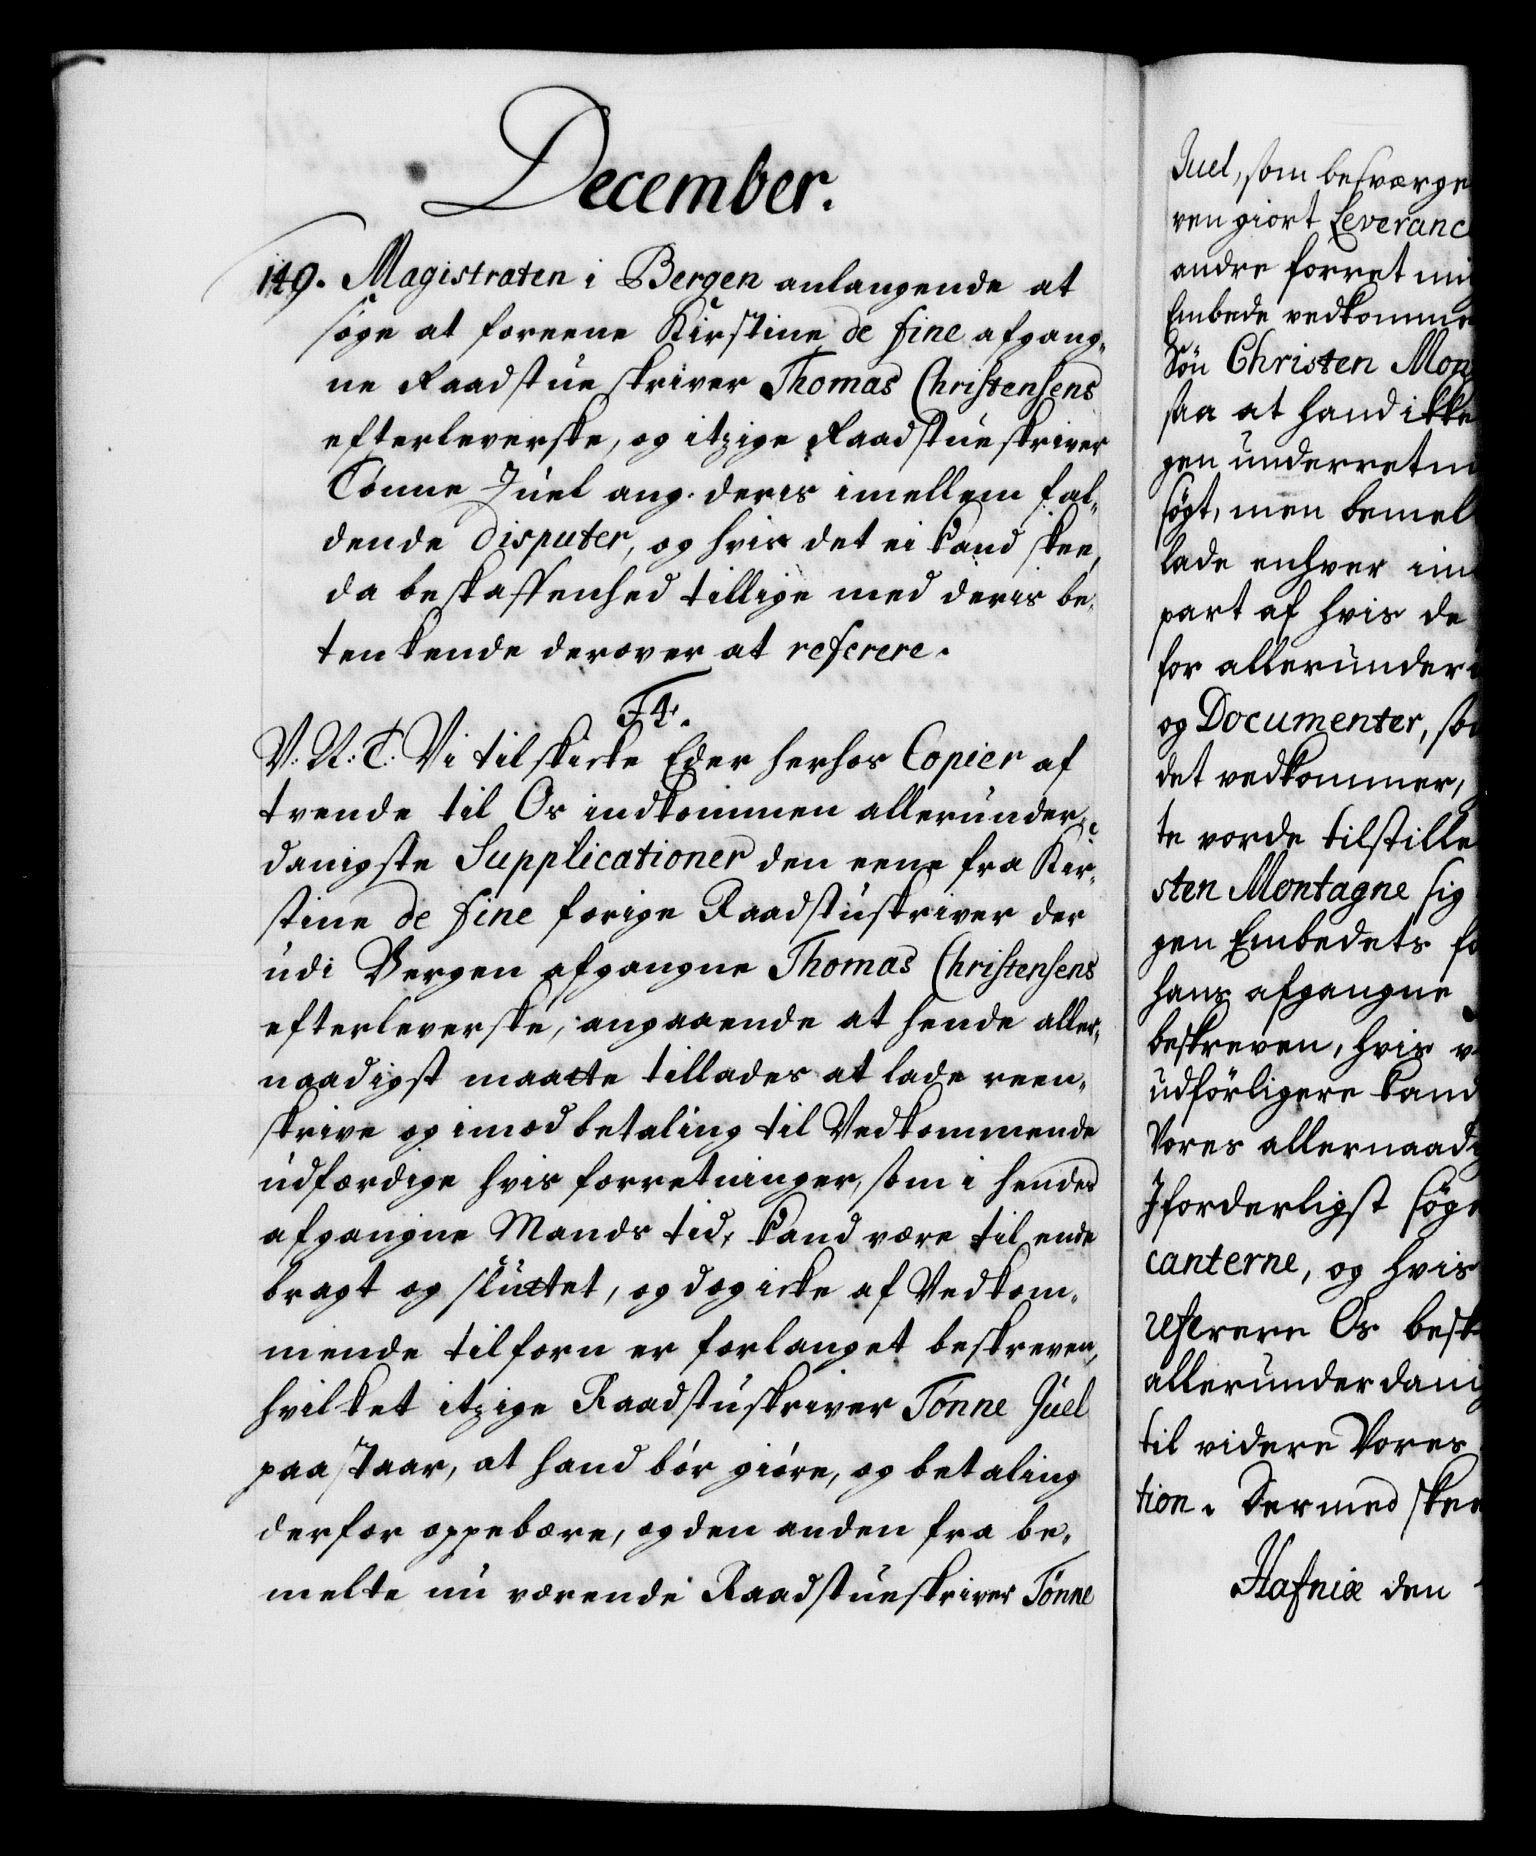 December.
149. Magistraten i Bergen anlangende at
søge at foreene Kirstine de fine afgang-
ne Raadstue skriver Thomas Christensens
efterleverske, og itzige Raadstue skriver
Tønne Juel ang. deris imellem fal-
dende disputer, og hvis det ei kand skee,
da beskaffenhed tillige med deris be-
tenkende derover at referere.
F4.
V: U: T: Vi tilskicke Eder herhos Copier af
tvende til Os indkommen allerunder-
danigste Supplicationer den eene fra Kir-
stine de fine forige Raadstuskriver der
udi Bergen afgangne Thomas Christensens
efterleverske, angaaende at hende aller-
naadigst maatte tillades at lade reen-
skrive og imod betaling til Vedkommende
udfærdige hvis forretninger, som i hendes
afgangne Mands tid, kand være til ende
bragt og sluttet, og dog icke af Vedkom-
mende tilforn er forlanget beskreven,
hvilket itzige Raadstuskriver Tønne Juel
paastaar, at hand bør giøre, og betaling
derfor oppebære, og den anden fra be-
melte nu værende Raadstueskriver Tønne
Juel, som besværge
ven giort Leveranc
andre forret
Embede vedkomme
Søn Christen Mon
saa at hand ikke
gen underretn
søgt, men bemel
lade enhver
part af hvis de
for allerunder
og Documenter, so
det vedkommer,
te vorde tilstille
sten Montagne sig
gen Embedets fo
hans afgangne
beskreven, hvis
udførligere kand
Vores allernaadig
I forderligst søge
canterne, og hvis
referere Os besk
allerunderdanig
til videre Vores
tion. Dermed skee
Hafniæ den